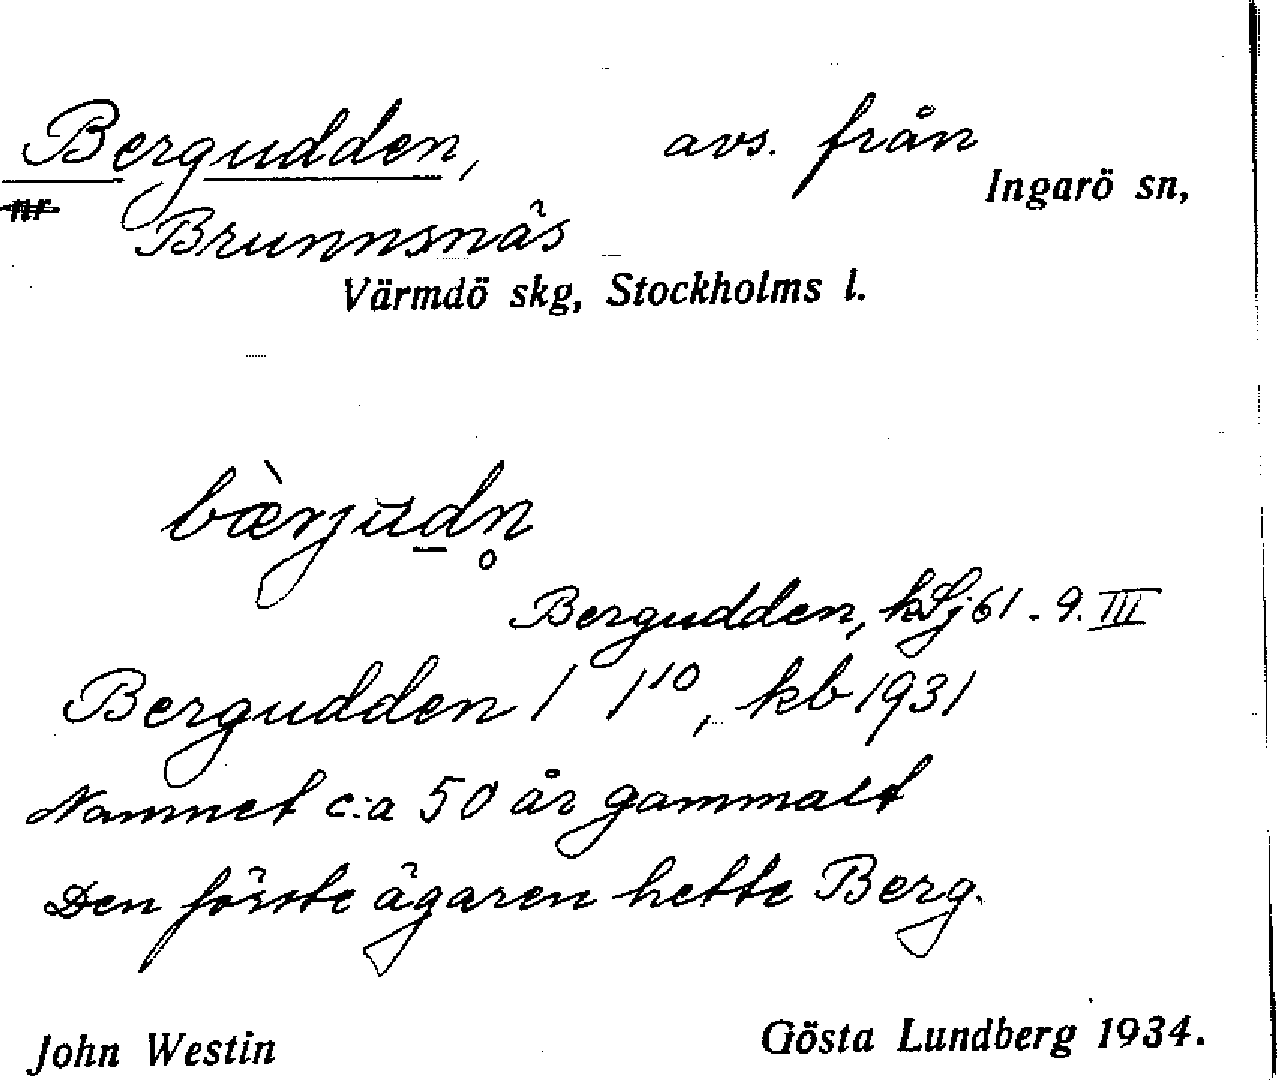 Bergudden, avs. från
Ingarö sn,
nr
Brunnsnäs
Värmdö skg, Stockholms l.
bæ̀rjudn̥
Bergudden, hSj61-9.III
Bergudden 1 1¹⁰, kb 1931
Namnet c:a 50 år gammalt
Den förste ägaren hette Berg.
John Westin Gösta Lundberg 1934.